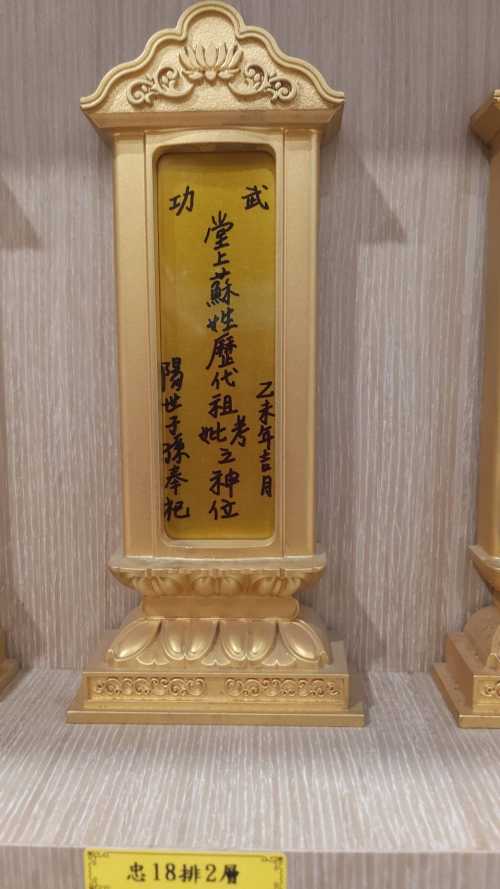 武功
堂上蘇姓歷代祖考妣之神位
乙未年吉月
陽世子孫奉祀
忠18排2層